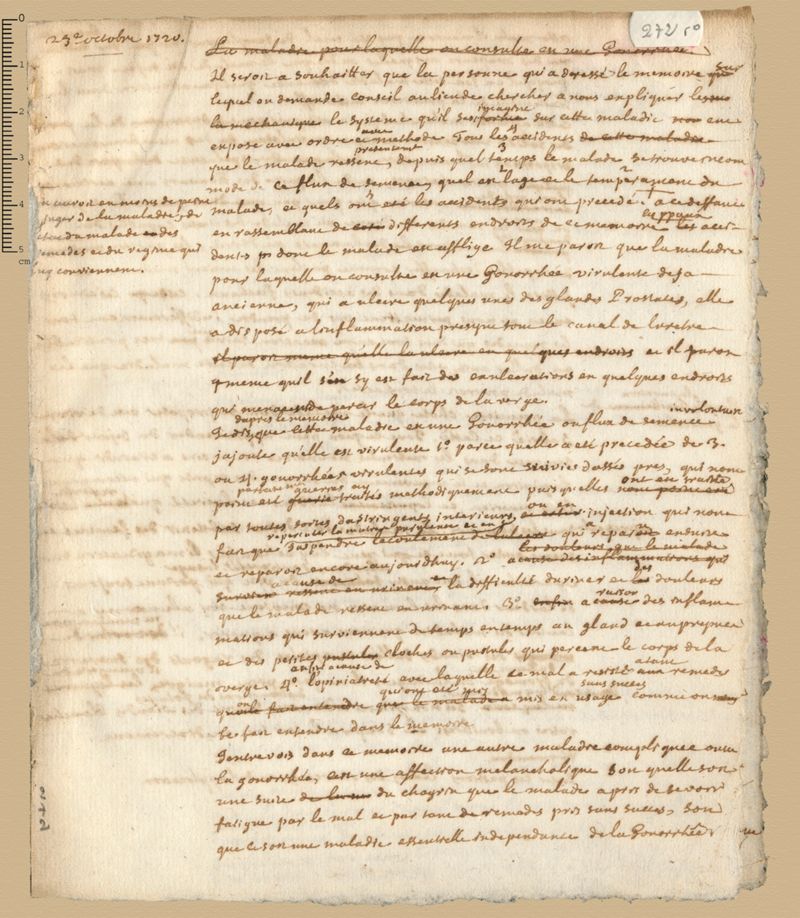 23e octobre 1720.
272 ro
La maladie pour laquelle on consulte est une Gonorrhée.
Il seroit a souhaitter que la personne qui a dressé le memoire sur
lequel on demande conseil au lieu de chercher a nous expliquer
la mechanique le systeme qu'il s'est imaginé sur cette maladie eut
exposé avec ordre et methode tous les accidents de cette maladie
que le malade ressent, presentement depuis quel temps le malade se trouve incom
modé de ce flux de semence, quel est l'age et le temperament du
malade, et quels ont eté les accidents qui ont precedé. a ce deffaut
on auroit eu moins de peine
juger de la maladie, de
l'etat du malade et des
remedes et du regime qui
luy conviennent.
en rassemblant de differents endroits de ce memoire les acci-
dents dont le malade est affligé Il me paroit que la maladie
pour laquelle on consulte est une Gonorrhée virulente deja
ancienne, qui a ulceré quelques unes des glandes Prostates, elle
a disposé a l'inflammation presque tout le canal de l'uretre
il paroit meme qu'elle l'a ulceré en quelques endroits et il paroit
meme qu'il s'y est fait des exulcerations en quelques endroits
qui menacent de percer le corps de la verge.
Je dis d'apres le memoire que cette maladie est une Gonorrhée ou flux de semence involontaire
j'ajoute qu'elle est virulente 1o. parce qu'elle a eté precedée de 3.
ou 4. gonorrhées virulentes qui se sont suivies d'assés pres, qui n'ont
point eté traittés methodiquement puisqu'elles ont eté traittés
par toutes sortes d'astringents interieurs, ou en injection qui n'ont
fait que suspendre l'ecoulement qui a reparu ensuite
et reparoit encore aujourdhuy. 2o a cause des inflammations qui
les douleurs que le malade
a cause de la difficulté d'uriner et des douleurs
que le malade ressent en urinant. 3o. a raison des inflam
mations qui surviennent de temps en temps au gland et au prepuce
et des petites cloches ou pustules qui percent le corps de la
verge. 4o. enfin a cause de l'opiniatreté avec laquelle ce mal a resisté a tant remedes
qui ont eté mis en usage sans succes comme on
le fait entendre dans le memoire
J'entrevois dans ce memoire une autre maladie compliquée avec
la gonorrhée, c'est une affection melancholique soit qu'elle soit
une suite du chagrin que le malade a pris de se voir
fatigué par le mal et par tant de remedes pris sans succes, soit
que ce soit une maladie essentielle independante de la Gonorrhée,